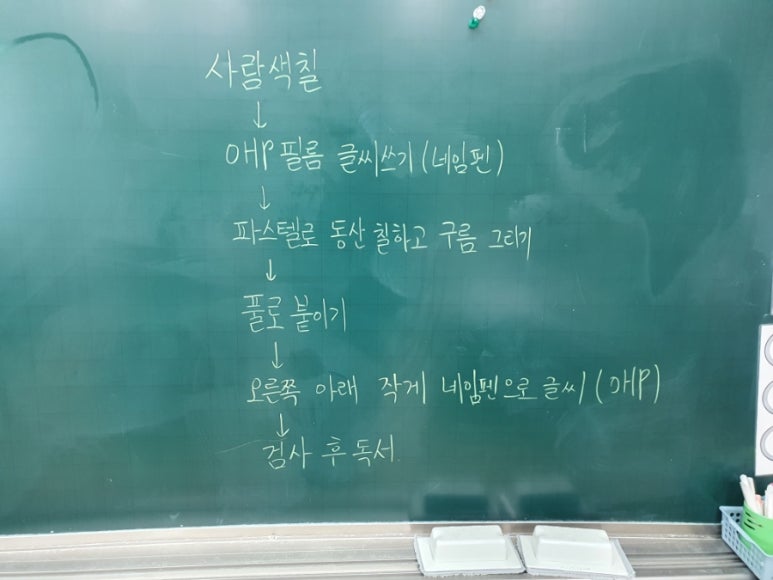 사람색칠
↓
OHP 필름 글씨쓰기 (네임펜)
↓
파스텔로 동산 칠하고 구름 그리기
↓
풀로 붙이기
↓
오른쪽 아래 작게 네임펜으로 글씨 (OHP)
↓
검사 후 독서